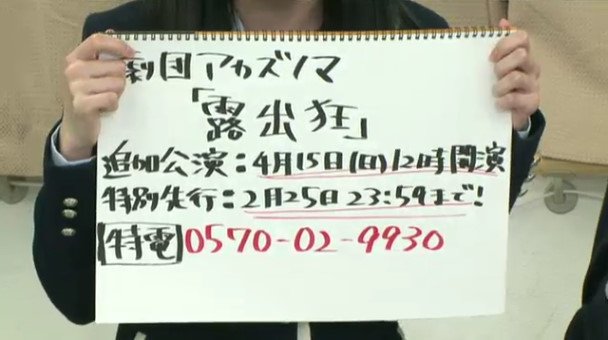 劇団アカズノマ
「露出狂」
追加公演:4月15日(日)12時開演
特別先行:2月25日23:59まで!
特電 0570-02-9930